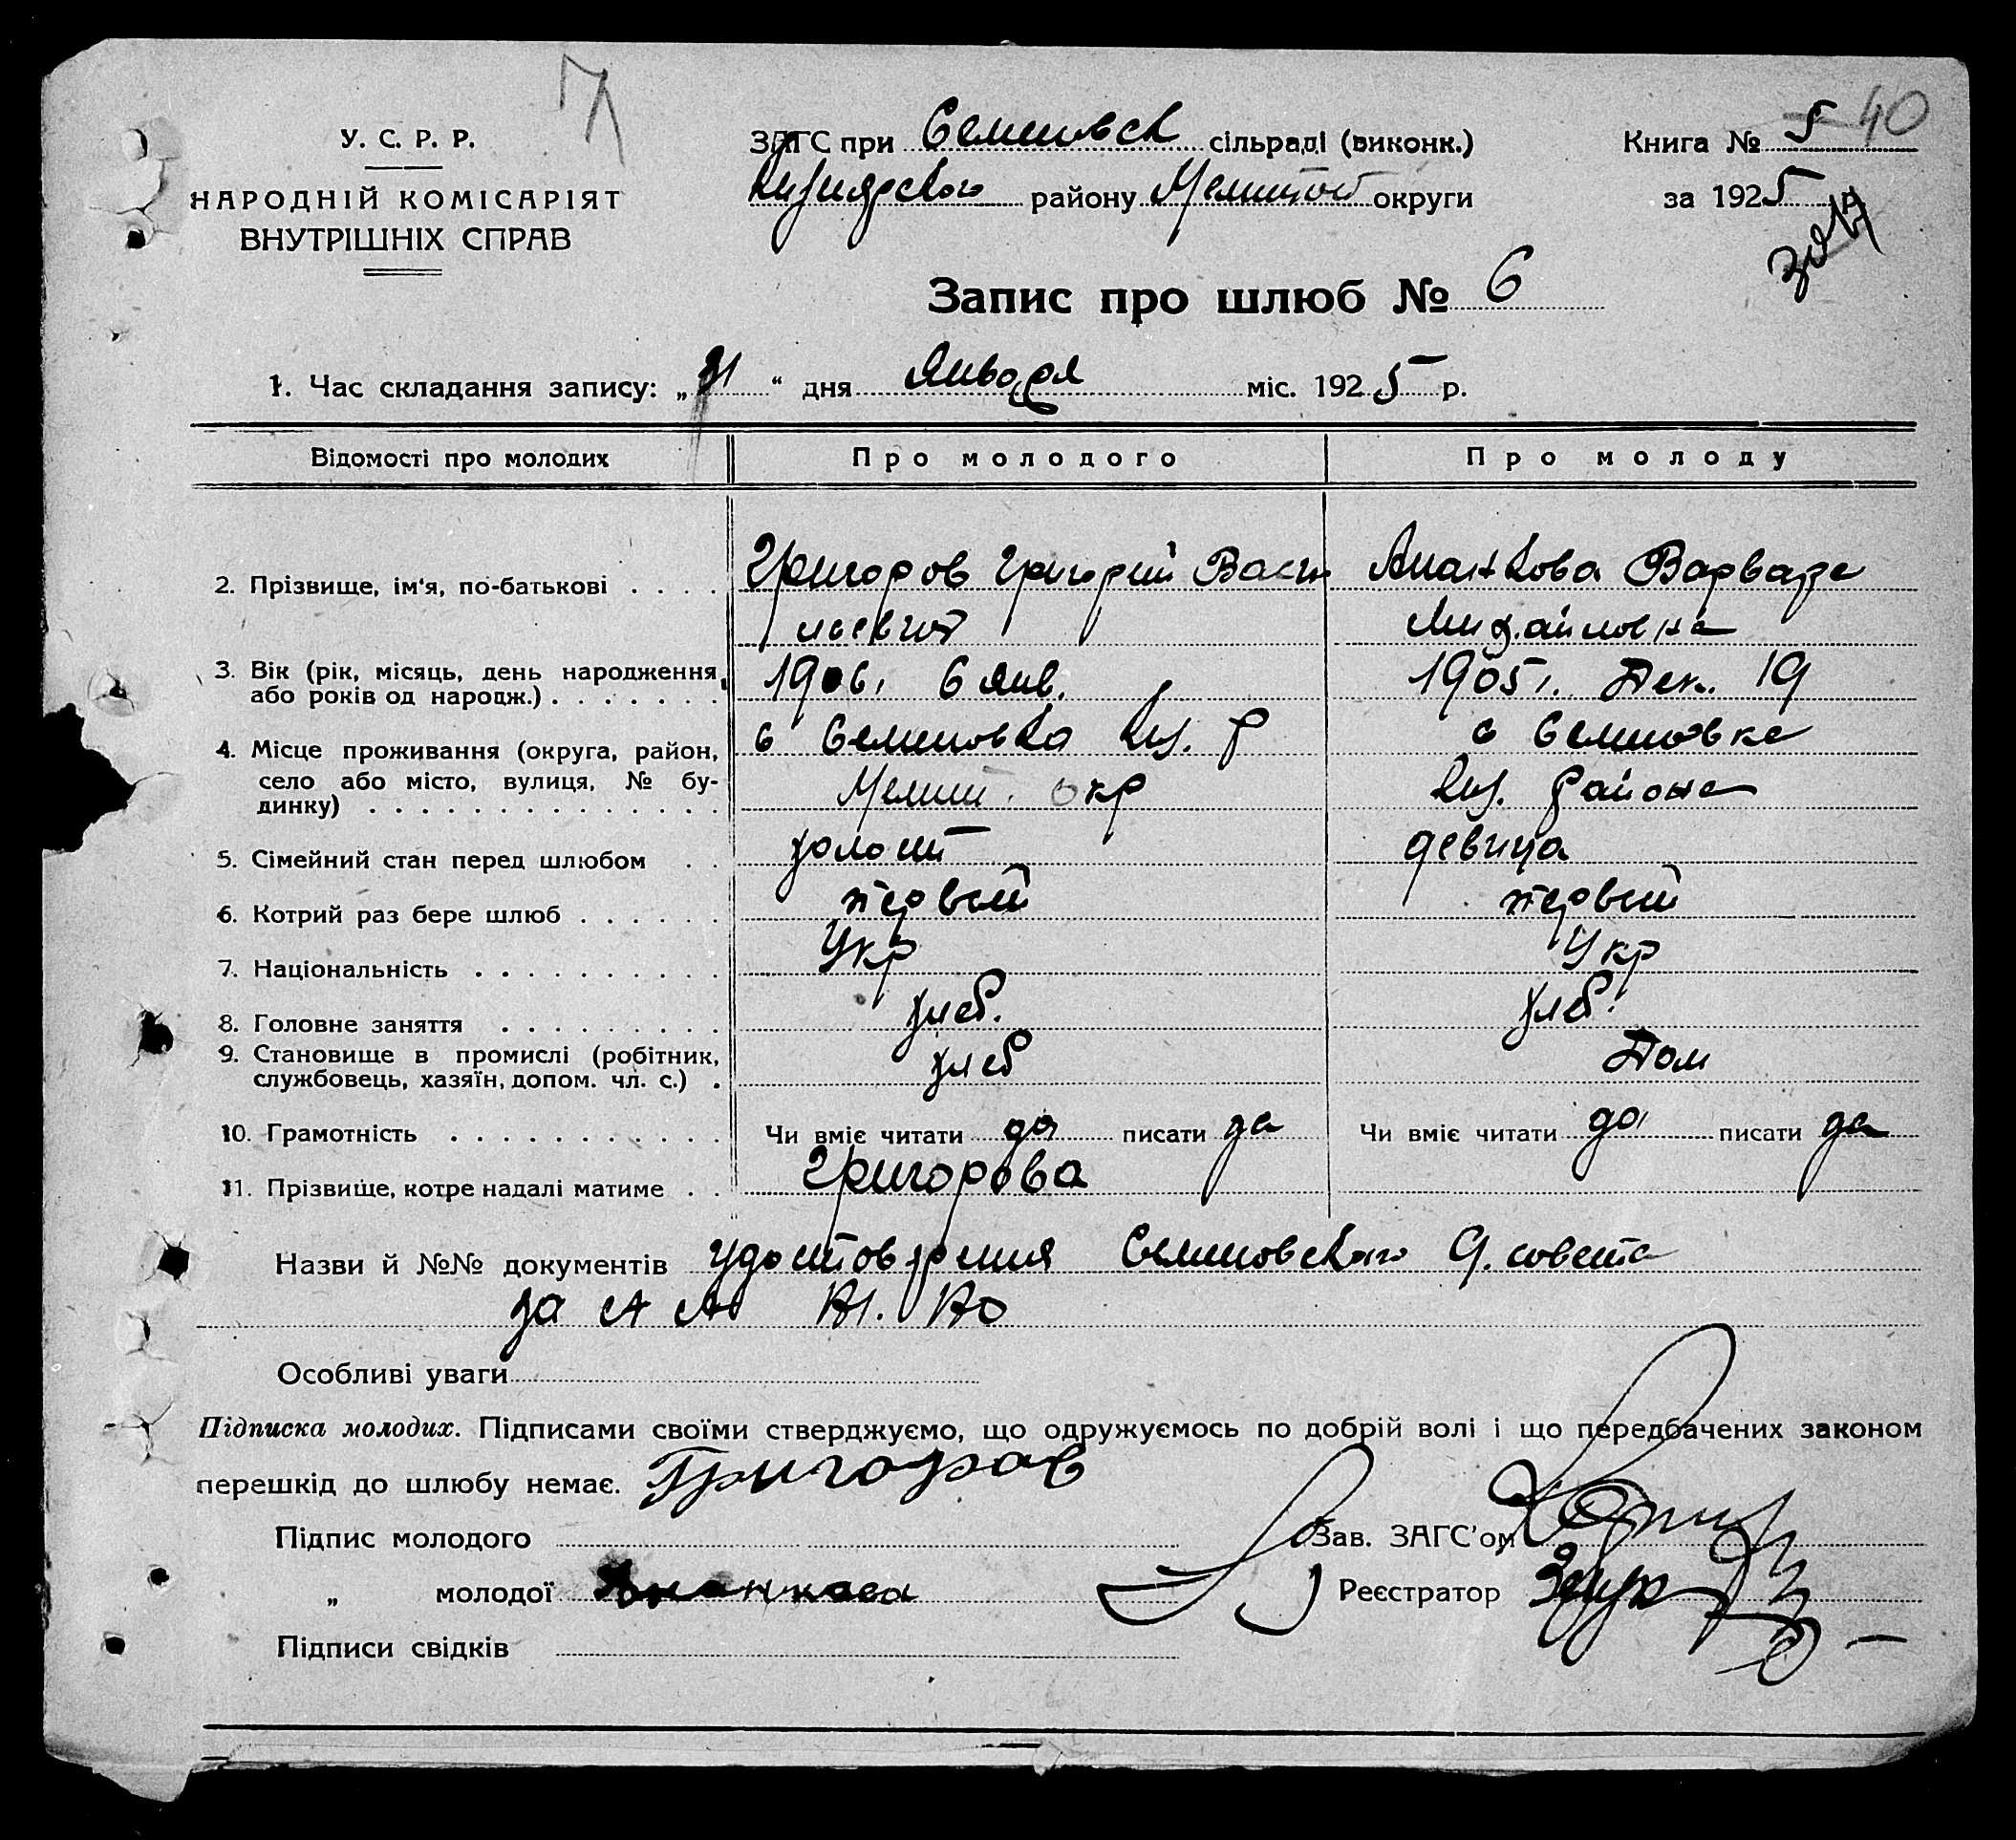 40
У. С. Р. Р.
НАРОДНІЙ КОМІСАРІЯТ
ВНУТРІШНІХ СПРАВ
ЗАГС при Семеновск сільраді (виконк.)
Кизиярского району Мелитоп округи
Книга № 5
за 1925
Запис про шлюб № 6
1. Час складання запису: „ “ дня Января міс. 1925 р.
Відомості про молодих
Про молодого
Про молоду
2. Прізвище, ім‘я, по-батькові . . . .
Григоров Григорий Васи
льевич
Варвара
Михайловна
3. Вік (рік, місяць, день народження
або років од народж.) . . . . . . .
1906, 6 Янв.
1905 г. Дек. 19
4. Місце проживання (округа, район,
село або місто, вулиця, № бу-
динку) . . . . . . . . . . . . . .
с Семеновка Киз. р
Мелит. окр
с Семеновка
Киз. района
5. Сімейний стан перед шлюбом . .
холост
девица
6. Котрий раз бере шлюб . . . . . .
первый
первый
7. Національність . . . . . . . . . .
Укр
Укр
8. Головне заняття . . . . . . . . .
хлеб.
хлеб.
9. Становище в промислі (робітник,
службовець, хазяїн, допом. чл. с.) .
хлеб
Дом
10. Грамотність . . . . . . . . . . .
Чи вміє читати да писати да
Чи вміє читати да писати да
11. Прізвище, котре надалі матиме . .
Григорова
Назви й №№ документів удостоверения Семеновского С. совета
за
Особливі уваги
Підписка молодих. Підписами своїми стверджуємо, що одружуємось по добрій волі і що передбачених законом
перешкід до шлюбу немає. Григоров
Підпис молодого
Зав. ЗАГС’ом
„ молодої
Реєстратор
Підписи свідків